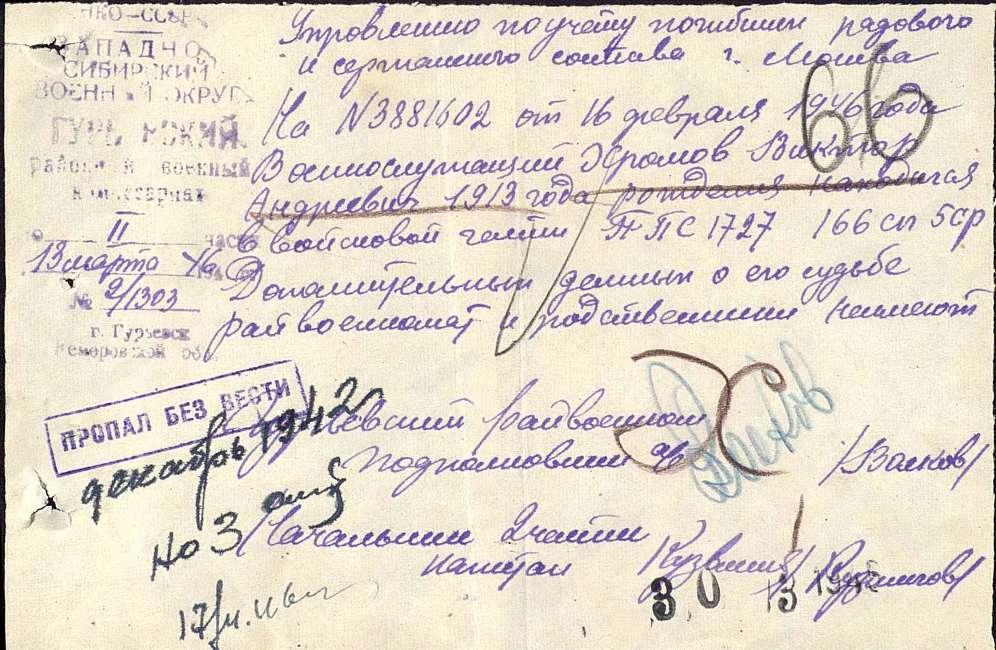 НКО-СССР
ЗАПАДНО
СИБИРСКИЙ
ВОЕННЫЙ ОКРУГ
ГУРЬЕВСКИЙ
районный военный
комиссариат
II
часть
13 марта 46
№ 2/1303
г. Гурьевск
Кемеровской об.
Управлению по учету погибших рядового
и сержанского состава г. Москва
66
На N3881602 от 16 февраля 1946 года
Военнослужащий Хромов Виктор
Андреевич 1913 года рождения находился
в войсковой части ППС 1727 166 сп 5ср
Дополнительных данных о его судьбе
райвоенкомат и родственники не имеют
ПРОПАЛ БЕЗ ВЕСТИ
декабрь 1942г
но 3
Гурьевский райвоенком
подполковник
/Волков/
Начальник 2 части
капитан
30
3